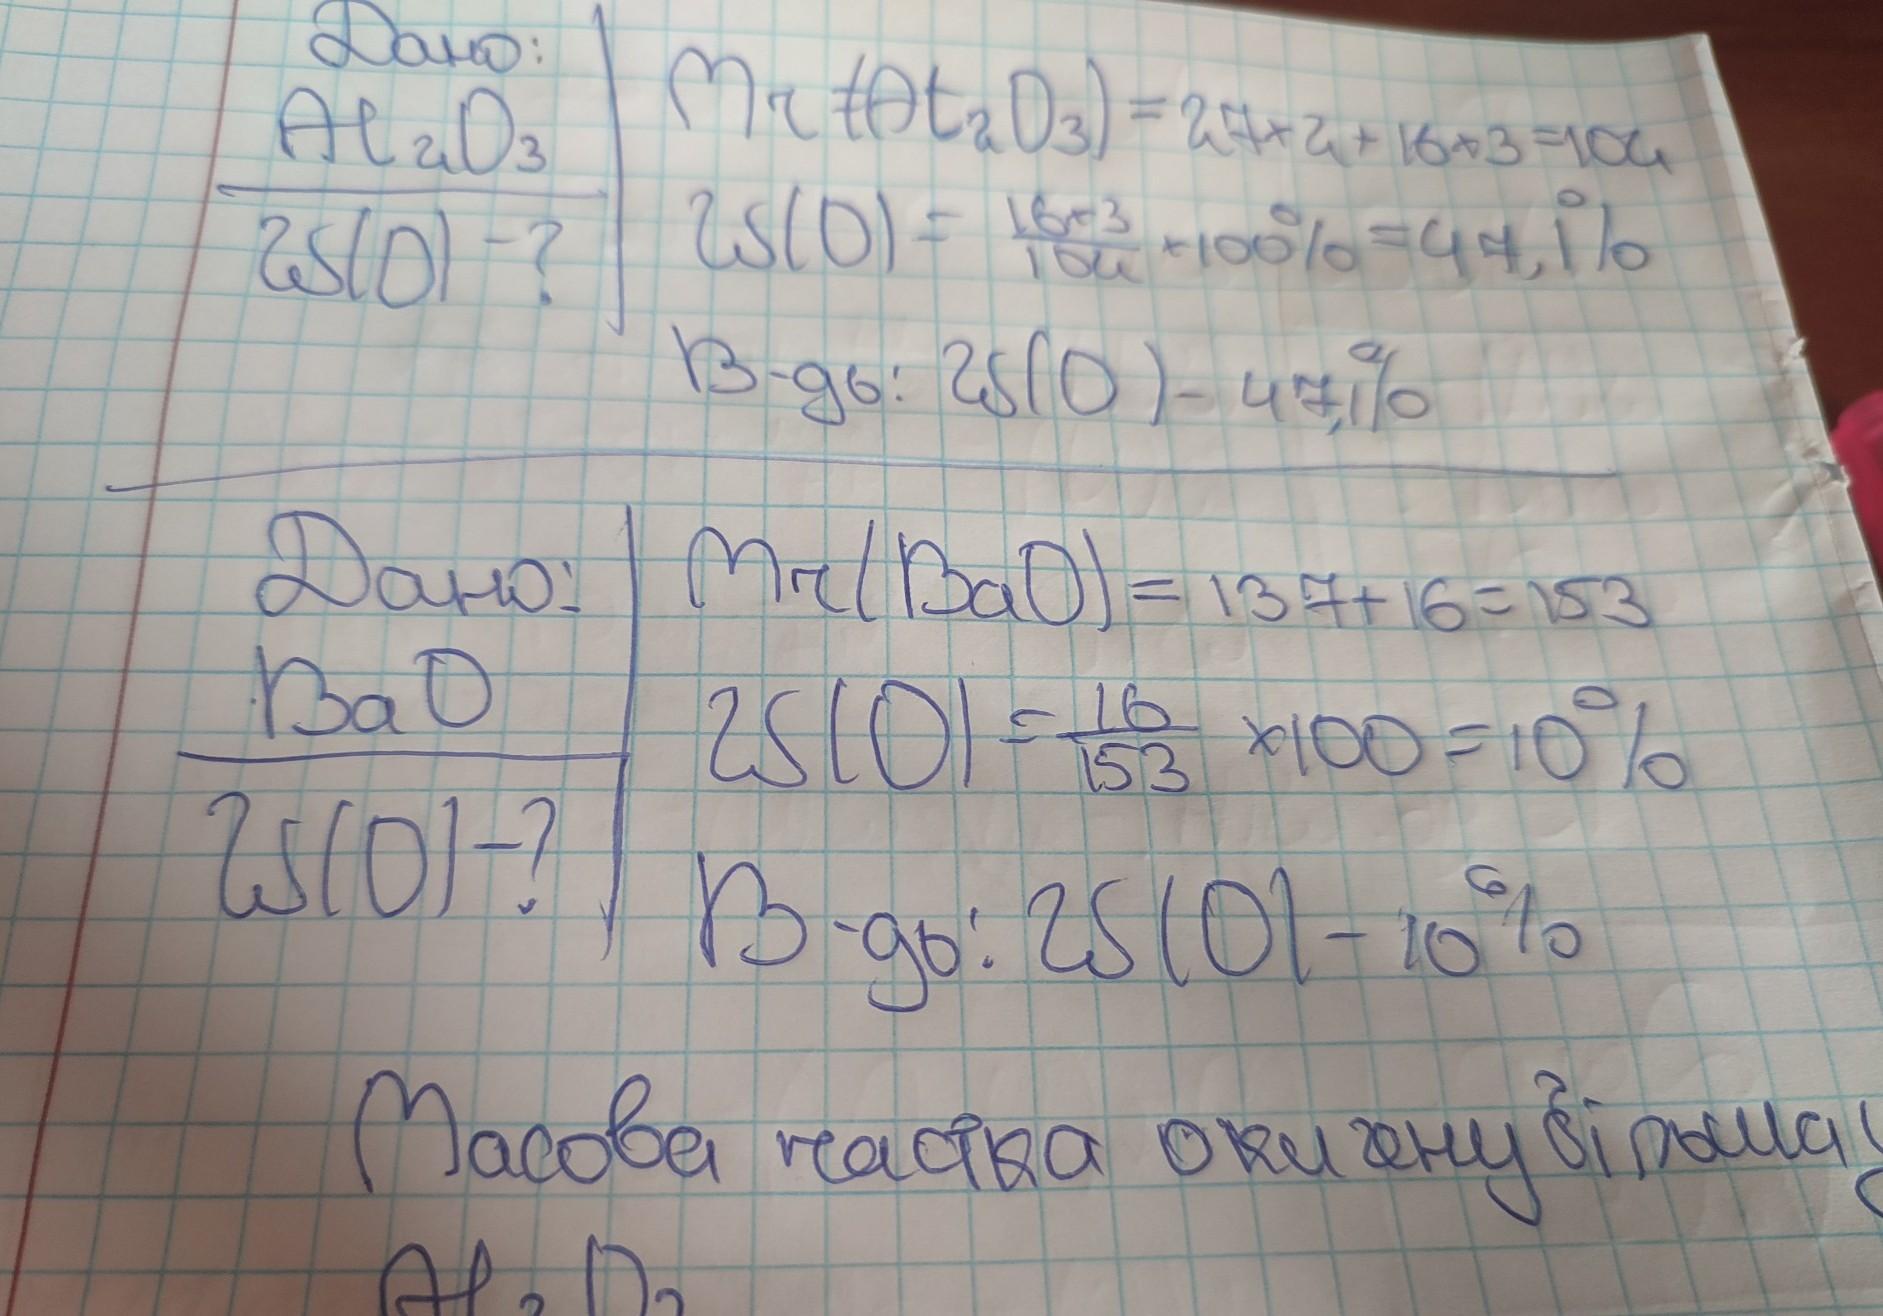 Дано:
Al₂O₃
W(O) - ?
Mr (Al₂O₃) = 27×2+16×3=102
W(O) = 16×3/102 ×100% = 47,1%
В-дь: W(O) - 47,1%
Дано:
BaO
W(O) - ?
Mr(BaO) = 137+16=153
W(O) = 16/153 ×100 = 10%
В-дь: W(O) - 10%
Масова частка оксигену більша у
Al₂O₃